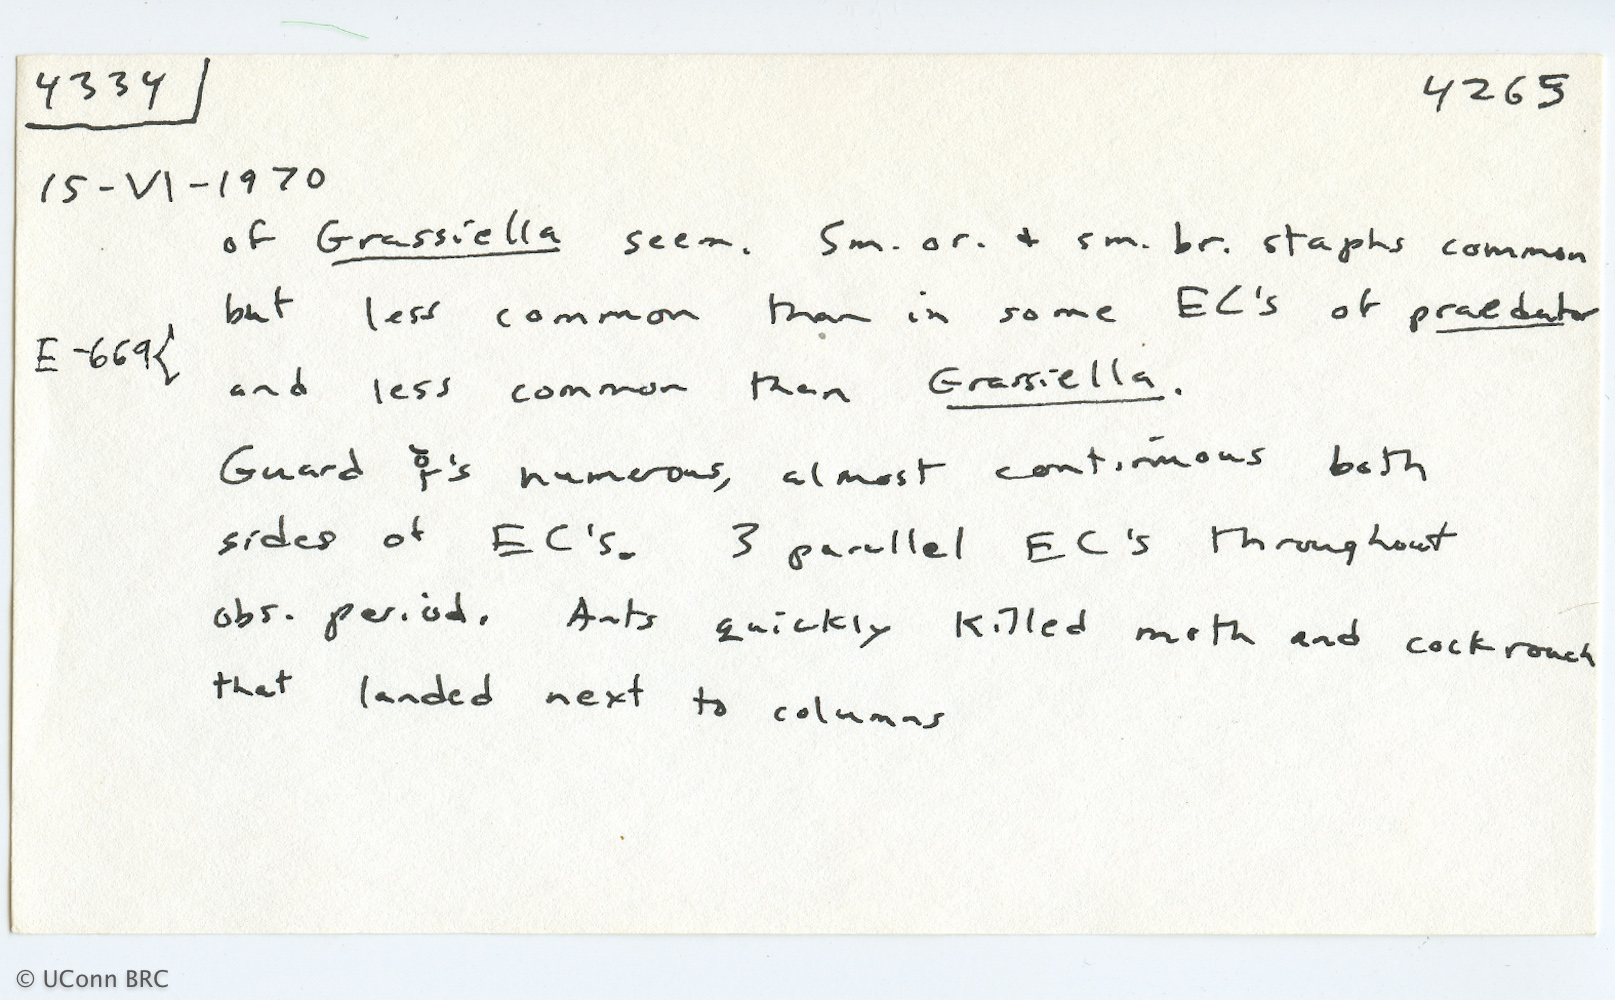 4334 4265
15-VI-1970
of Grassiella seen. Sm. or. + sm. br. staphs common
but less common than in some EC's of praedator
E-669{
and less common than Grassiella.
Guard ☿'s numerous, almost continuous both
sides of EC's. 3 parallel EC's throughout
obs. period. Ants quickly killed moth and cockroach
that landed next to columns
© UConn BRC